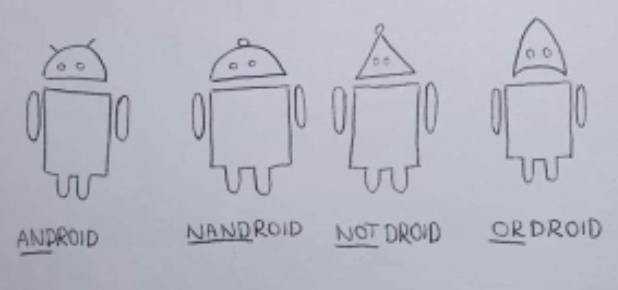 ANDROID NANDROID NOT DROID ORDROID